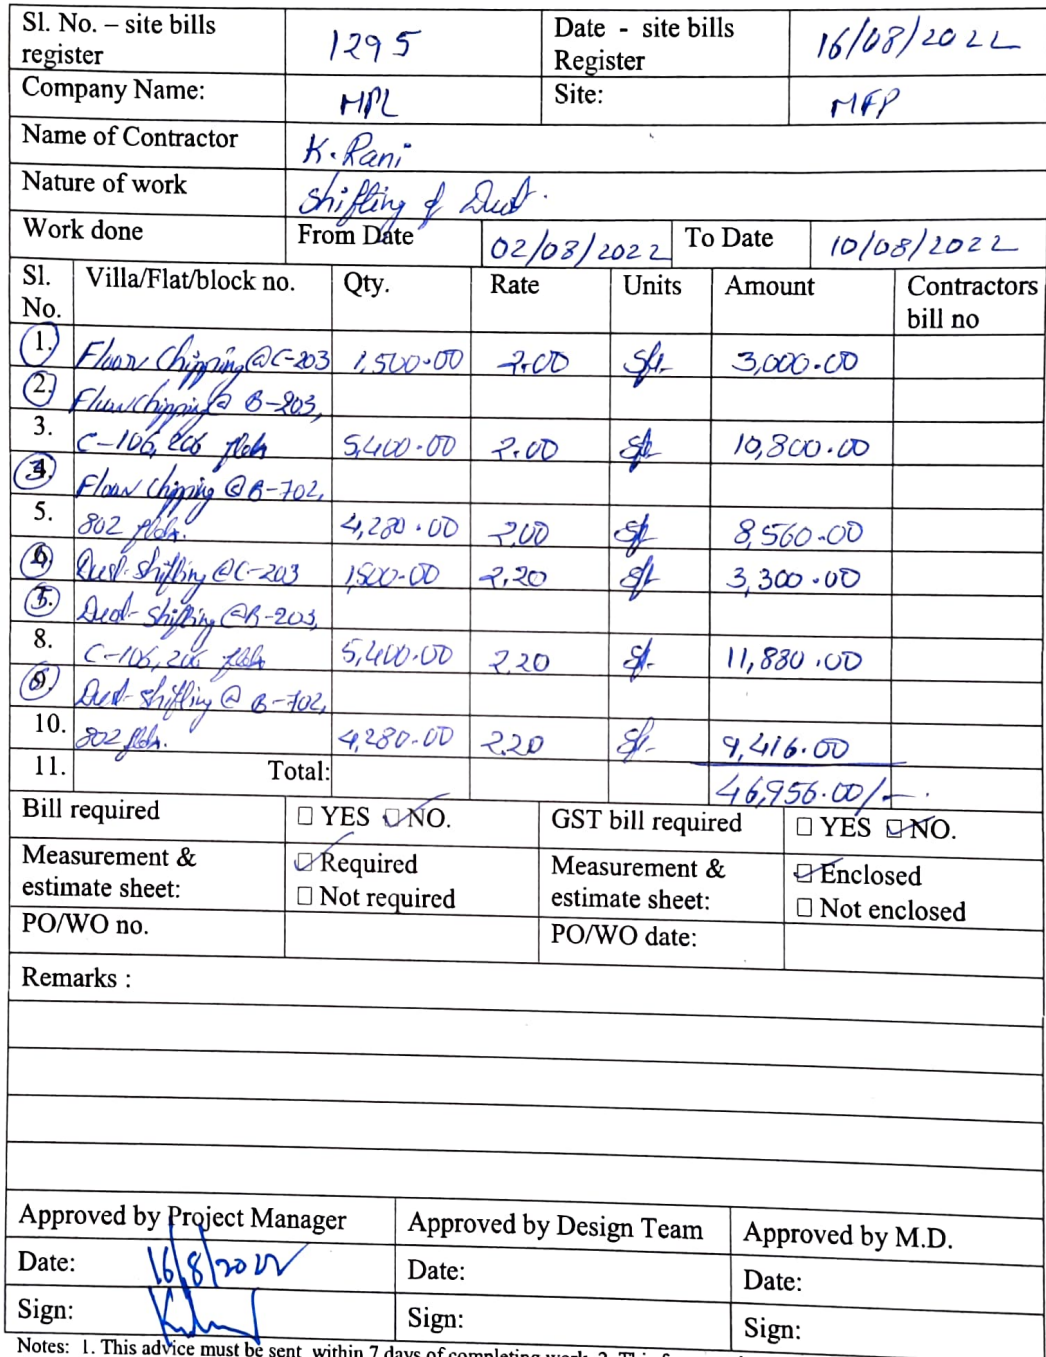 Sl. No. – site bills register 1295 Date - site bills Register 16/08/2022
Company Name: MPL Site: MFP
Name of Contractor K. Rani
Nature of work Shifting of Dust.
Work done From Date 02/08/2022 To Date 10/08/2022
Sl. No. Villa/Flat/block no. Qty. Rate Units Amount Contractors bill no
1. Floor Chipping @ C-203 1,500.00 2.00 Sft. 3,000.00
2. Floor Chipping @ B-203,
3. C-106, 206 flats 5,400.00 2.00 Sft 10,800.00
3. Floor Chipping @ B-702,
5. 802 flats. 4,280.00 2.00 Sft 8,560.00
4. Dust-shifting @ C-203 1,500.00 2.20 Sft 3,300.00
5. Dust-Shifting @ B-203,
8. C-106, 206 flats 5,400.00 2.20 Sft. 11,880.00
6. Dust-Shifting @ B-702,
10. 802 flats. 4,280.00 2.20 Sft. 9,416.00
11. Total: 46,956.00/-
Bill required □ YES □ NO. GST bill required □ YES □ NO.
Measurement & estimate sheet: □ Required □ Not required Measurement & estimate sheet: □ Enclosed □ Not enclosed
PO/WO no. PO/WO date:
Remarks :
Approved by Project Manager Approved by Design Team Approved by M.D.
Date: 16/8/2022 Date: Date:
Sign: Sign: Sign:
Notes: 1. This advice must be sent within 7 days of completing work. 2. This